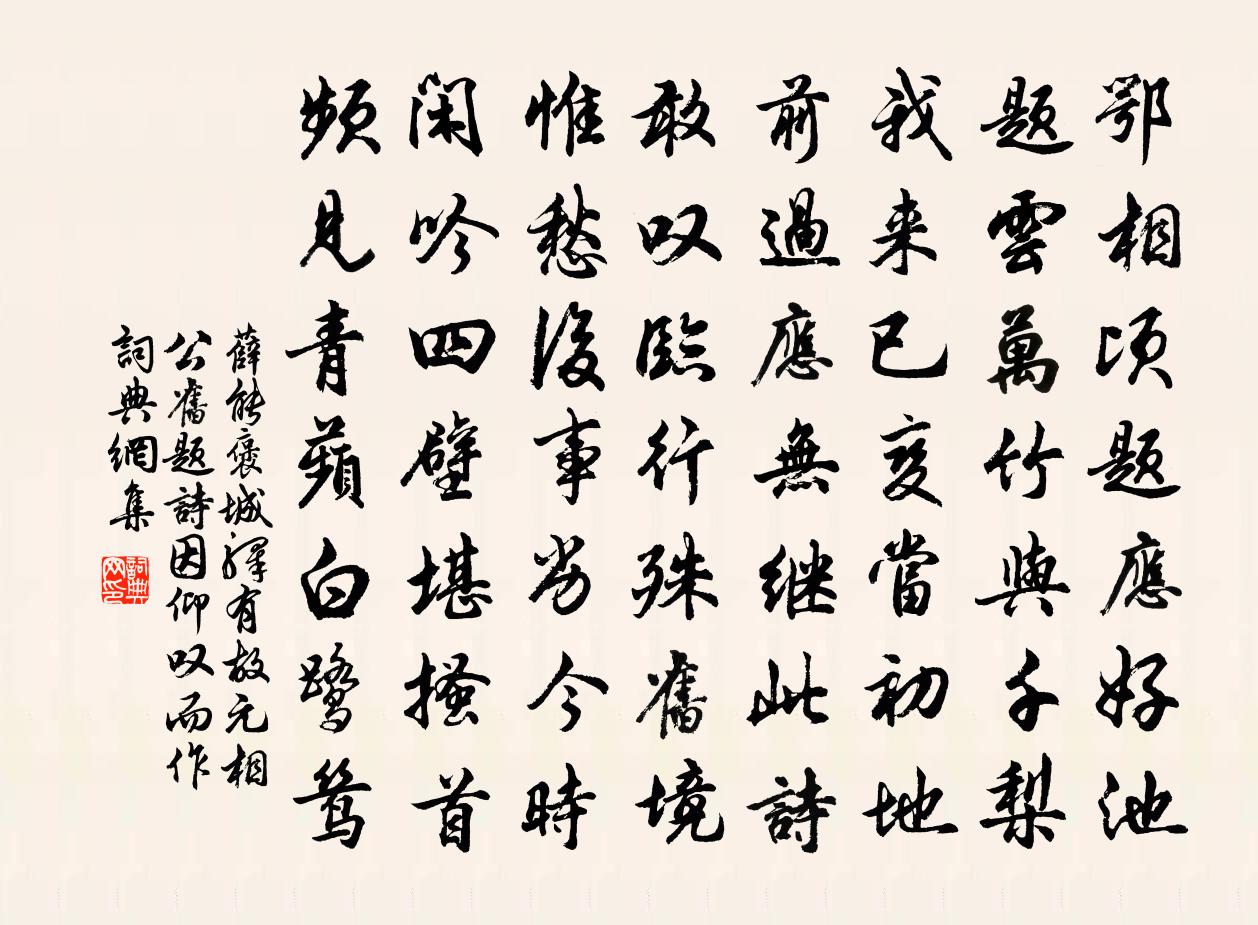 鄂相頃題應好池
題雲萬竹與千梨
我来已變當初地
前過應無继此詩
敢叹臨行殊舊境
惟愁後事劣今時
闲吟四壁堪搔首
頻見青蘋白鷺鶯
薛能褒城驛有故元相
公舊題詩因仰叹而作
詞典網集
詞典网印